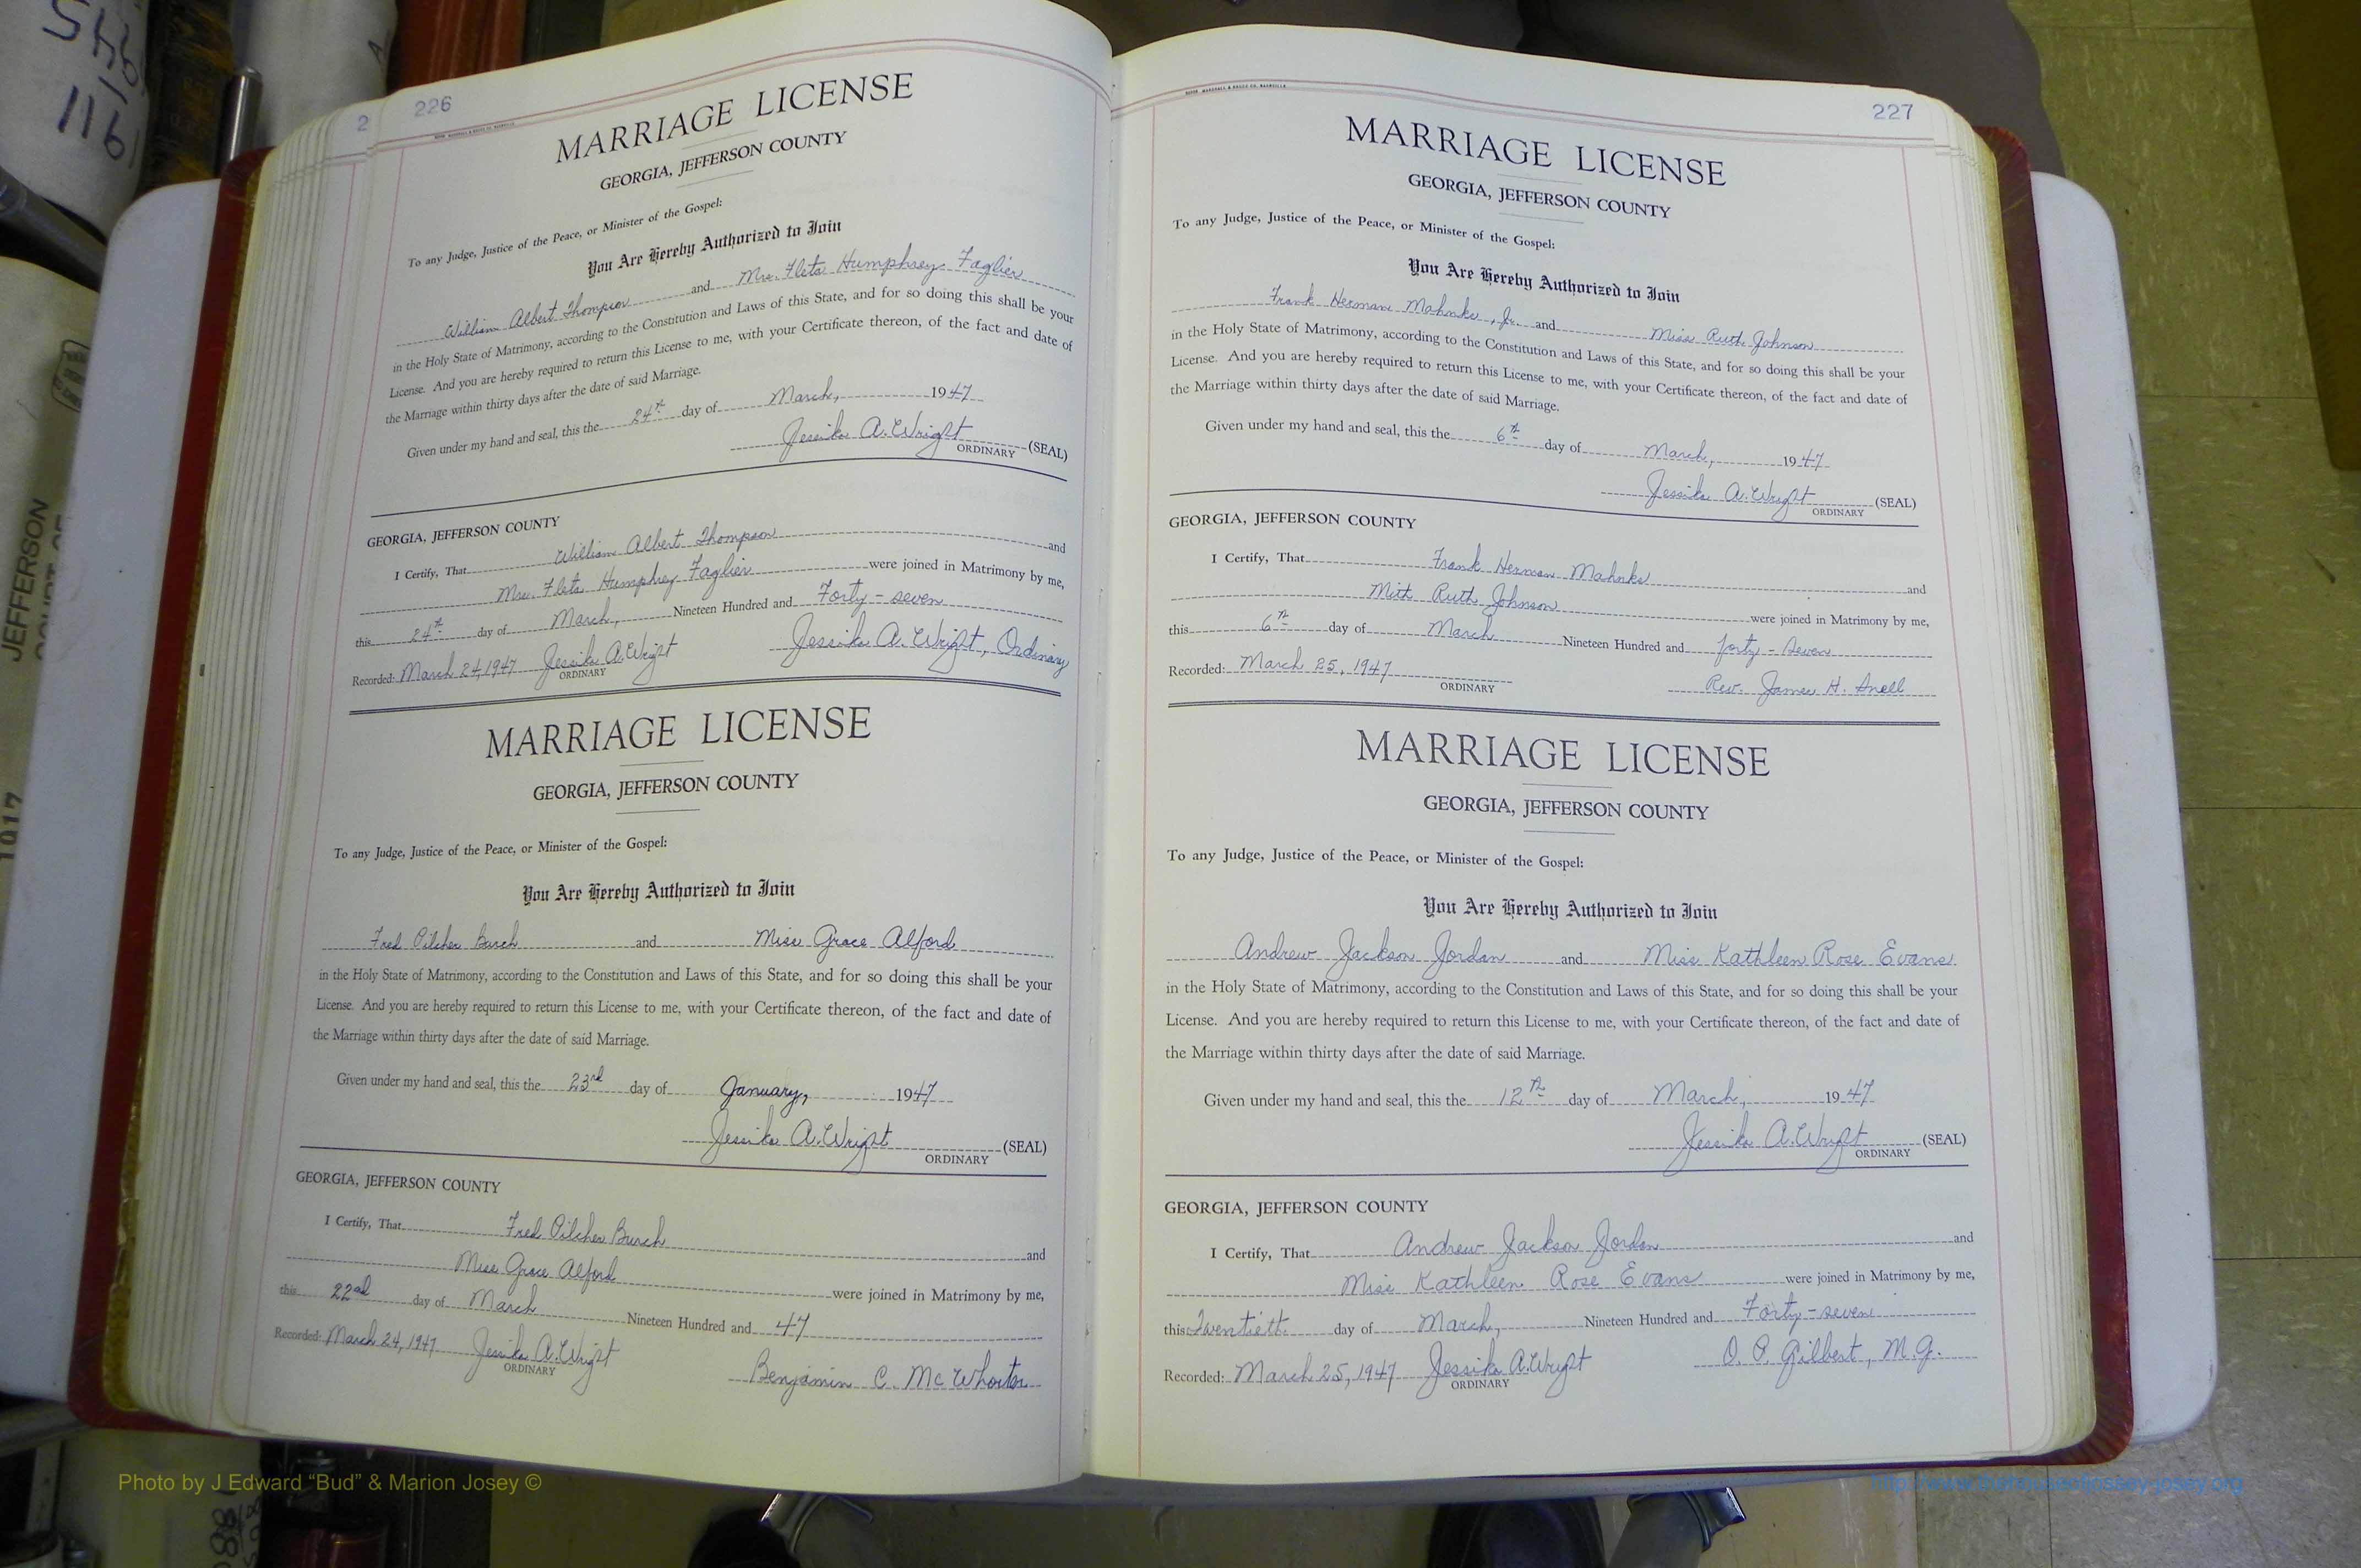 226
MARRIAGE LICENSE
GEORGIA, JEFFERSON COUNTY
To any Judge, Justice of the Peace, or Minister of the Gospel:
You Are Hereby Authorized to Join
William Albert Thompson and Mrs. Fleta Humphrey Faglier
in the Holy State of Matrimony, according to the Constitution and Laws of this State, and for so doing this shall be your
License. And you are hereby required to return this License to me, with your Certificate thereon, of the fact and date of
the Marriage within thirty days after the date of said Marriage.
Given under my hand and seal, this the 24th day of March, 1947
Jessika A. Wright (SEAL)
ORDINARY
GEORGIA, JEFFERSON COUNTY
I Certify, That William Albert Thompson and
Mrs. Fleta Humphrey Faglier were joined in Matrimony by me,
this 24th day of March, Nineteen Hundred and Forty-seven
Recorded: March 24, 1947 Jessika A. Wright Jessika A. Wright, Ordinary
ORDINARY
MARRIAGE LICENSE
GEORGIA, JEFFERSON COUNTY
To any Judge, Justice of the Peace, or Minister of the Gospel:
You Are Hereby Authorized to Join
Fred Pilcher Burch and Miss Grace Alford
in the Holy State of Matrimony, according to the Constitution and Laws of this State, and for so doing this shall be your
License. And you are hereby required to return this License to me, with your Certificate thereon, of the fact and date of
the Marriage within thirty days after the date of said Marriage.
Given under my hand and seal, this the 23rd day of January, 1947
Jessika A. Wright (SEAL)
ORDINARY
GEORGIA, JEFFERSON COUNTY
I Certify, That Fred Pilcher Burch and
Miss Grace Alford were joined in Matrimony by me,
this 22nd day of March Nineteen Hundred and 47
Recorded: March 24, 1947 Jessika A. Wright
ORDINARY
Benjamin C. McWhorter
227
MARRIAGE LICENSE
GEORGIA, JEFFERSON COUNTY
To any Judge, Justice of the Peace, or Minister of the Gospel:
You Are Hereby Authorized to Join
Frank Herman Mahnke, Jr. and Miss Ruth Johnson
in the Holy State of Matrimony, according to the Constitution and Laws of this State, and for so doing this shall be your
License. And you are hereby required to return this License to me, with your Certificate thereon, of the fact and date of
the Marriage within thirty days after the date of said Marriage.
Given under my hand and seal, this the 6th day of March, 1947
Jessika A. Wright (SEAL)
ORDINARY
GEORGIA, JEFFERSON COUNTY
I Certify, That Frank Herman Mahnke and
Ruth Johnson were joined in Matrimony by me,
this 6th day of March Nineteen Hundred and forty-seven
Recorded: March 25, 1947
ORDINARY
Rev. James H. Snell
MARRIAGE LICENSE
GEORGIA, JEFFERSON COUNTY
To any Judge, Justice of the Peace, or Minister of the Gospel:
You Are Hereby Authorized to Join
Andrew Jackson Jordan and Miss Kathleen Rose Evans
in the Holy State of Matrimony, according to the Constitution and Laws of this State, and for so doing this shall be your
License. And you are hereby required to return this License to me, with your Certificate thereon, of the fact and date of
the Marriage within thirty days after the date of said Marriage.
Given under my hand and seal, this the 12th day of March, 1947
Jessika A. Wright (SEAL)
ORDINARY
GEORGIA, JEFFERSON COUNTY
I Certify, That Andrew Jackson Jordan and
Miss Kathleen Rose Evans were joined in Matrimony by me,
this Twentieth day of March, Nineteen Hundred and Forty-seven
Recorded: March 25, 1947 Jessika A. Wright O. P. Gilbert, M.G.
ORDINARY
JEFFERSON
Photo by J Edward “Bud” & Marion Josey ©
http://www.thehouseofjossey-josey.org